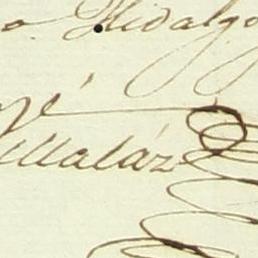 o Hidalgo
Villaláz